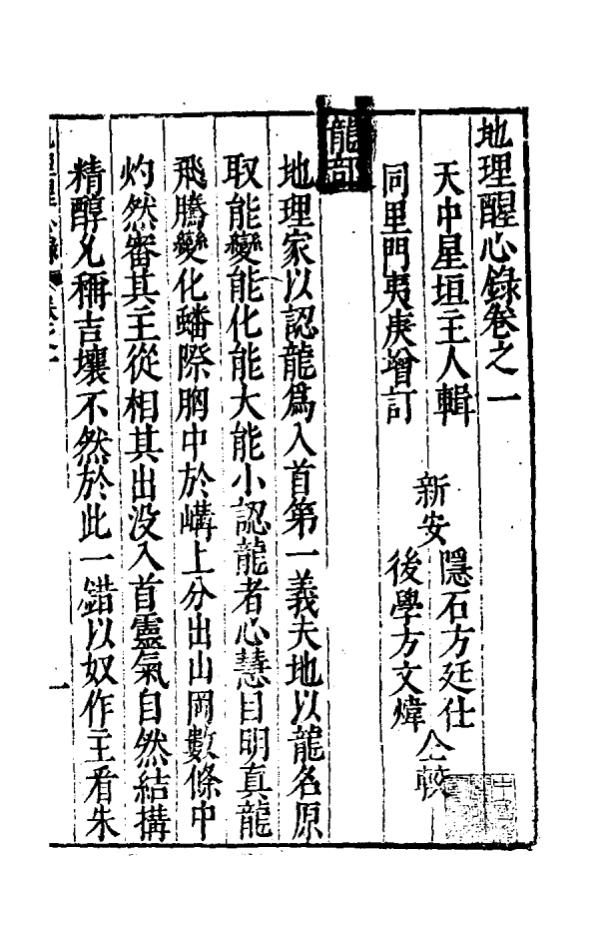 地理醒心錄卷之一
天中星垣主人輯
同里門夷庚增訂
新安
隱石方廷仕
後學方文煒
仝較
龍部
地理家以認龍爲入首第一義夫地以龍名原
取能變能化能大能小認龍者心慧目明真龍
飛騰變化蟠際胸中於嶙上分出山岡數條中
灼然審其主從相其出没入首靈氣自然結搆
精醇允稱吉壤不然於此一錯以奴作主看朱
一